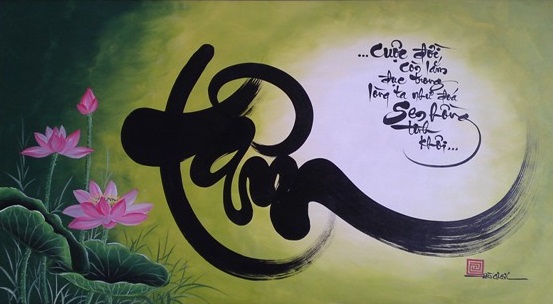 Tâm
...Cuộc đời
còn lắm
đục trong
lòng ta như đoá
Sen hồng
tinh
khôi...